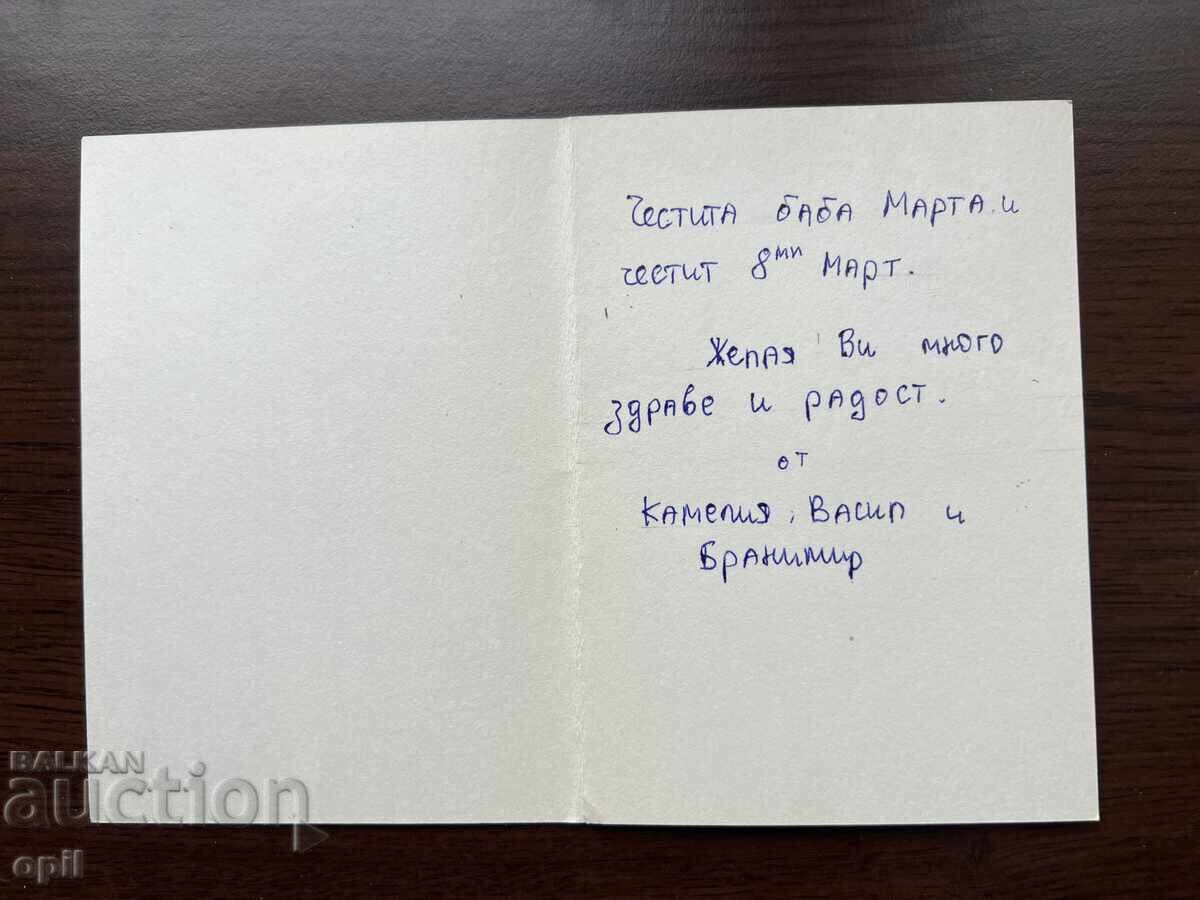 Честита баба Марта и
честит 8ми март.
Желая Ви много
здраве и радост.
от
Камелия, Васил и
Бранимир
BALKAN
auction
opil